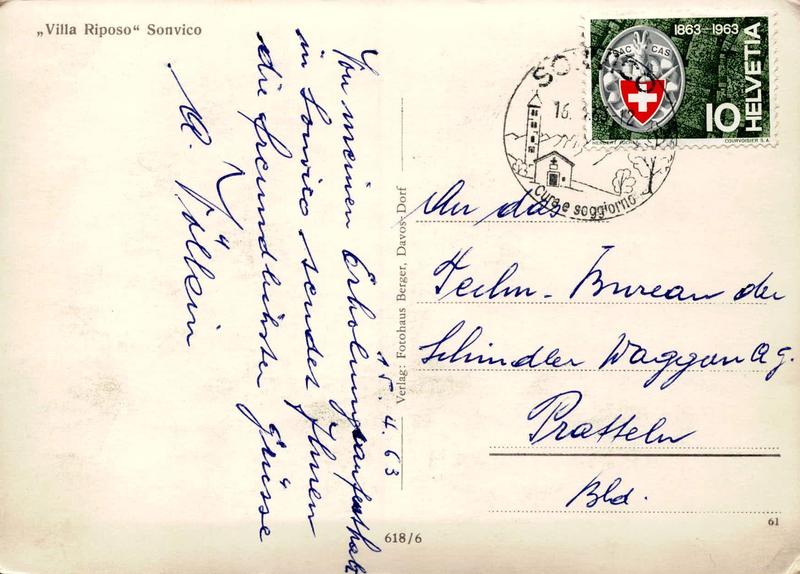 „Villa Riposo“ Sonvico
15.4.63
Von meinem Erholungsaufenthalt
in Sonvico sendet Ihnen
die freundlichsten Grüsse
Verlag: Fotohaus Berger, Davos-Dorf
618/6
1863-1963
SAC CAS
HELVETIA
10
COURVOISIER S.A.
SONVICO
16.
Cura e soggiorno
An das
Techn. Bureau der
Schindler Waggon Ag.
Pratteln
Bld.
61